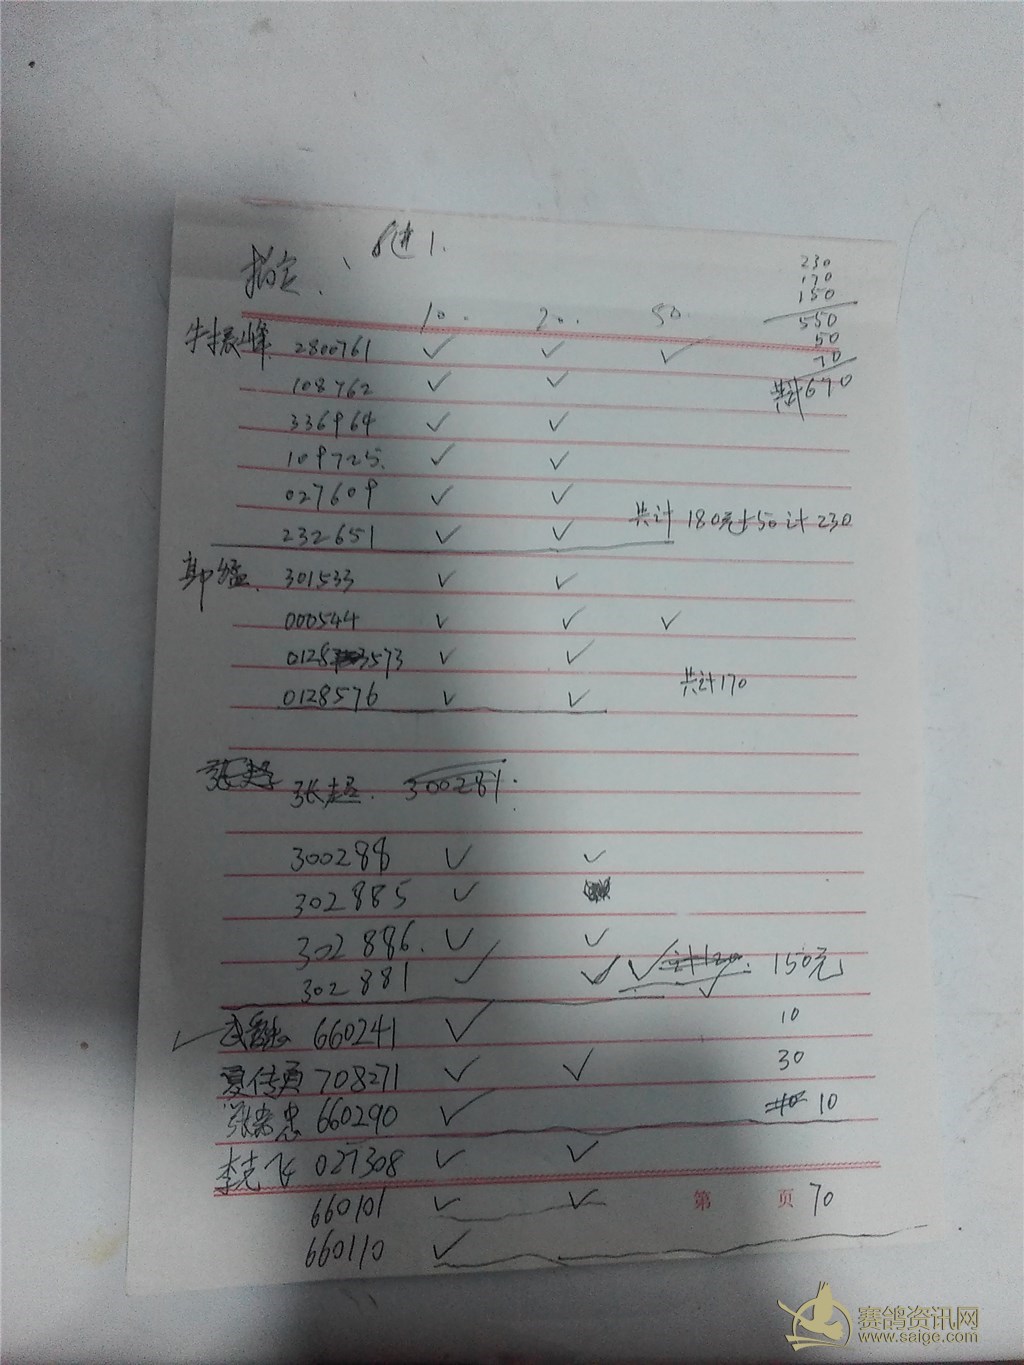 指定、 1.
10. 20. 50.
230
170
150
550
50
70
共计670
牛振峰 2800761 ✓ ✓ ✓
108762 ✓ ✓
336964 ✓ ✓
109725. ✓ ✓
027609 ✓ ✓
共计 180元+50计230
232651 ✓ ✓
301533 ✓ ✓
000544 ✓ ✓ ✓
0128 3573 ✓ ✓
0128576 ✓ ✓ 共计170
张超. 300281.
300288 ✓ ✓
302885 ✓
302886. ✓ ✓
302881 ✓ ✓ ✓ 计120. 150元
660241 ✓ 10
夏传勇 708271 ✓ ✓ 30
660290 ✓ 10
李克飞 027308 ✓ ✓
660101 ✓ ✓ 第 页 70
660110 ✓
赛鸽资讯网
www.saige.com